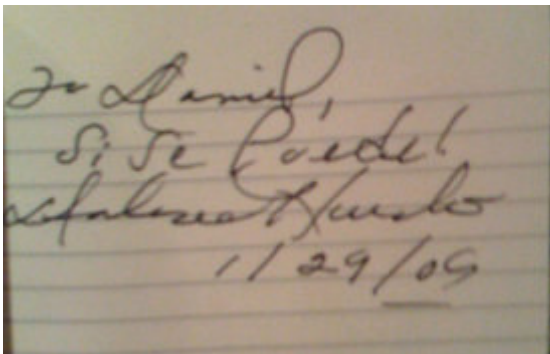 To Daniel,
Si Se Puede!
Dolores Huerta
1/29/09